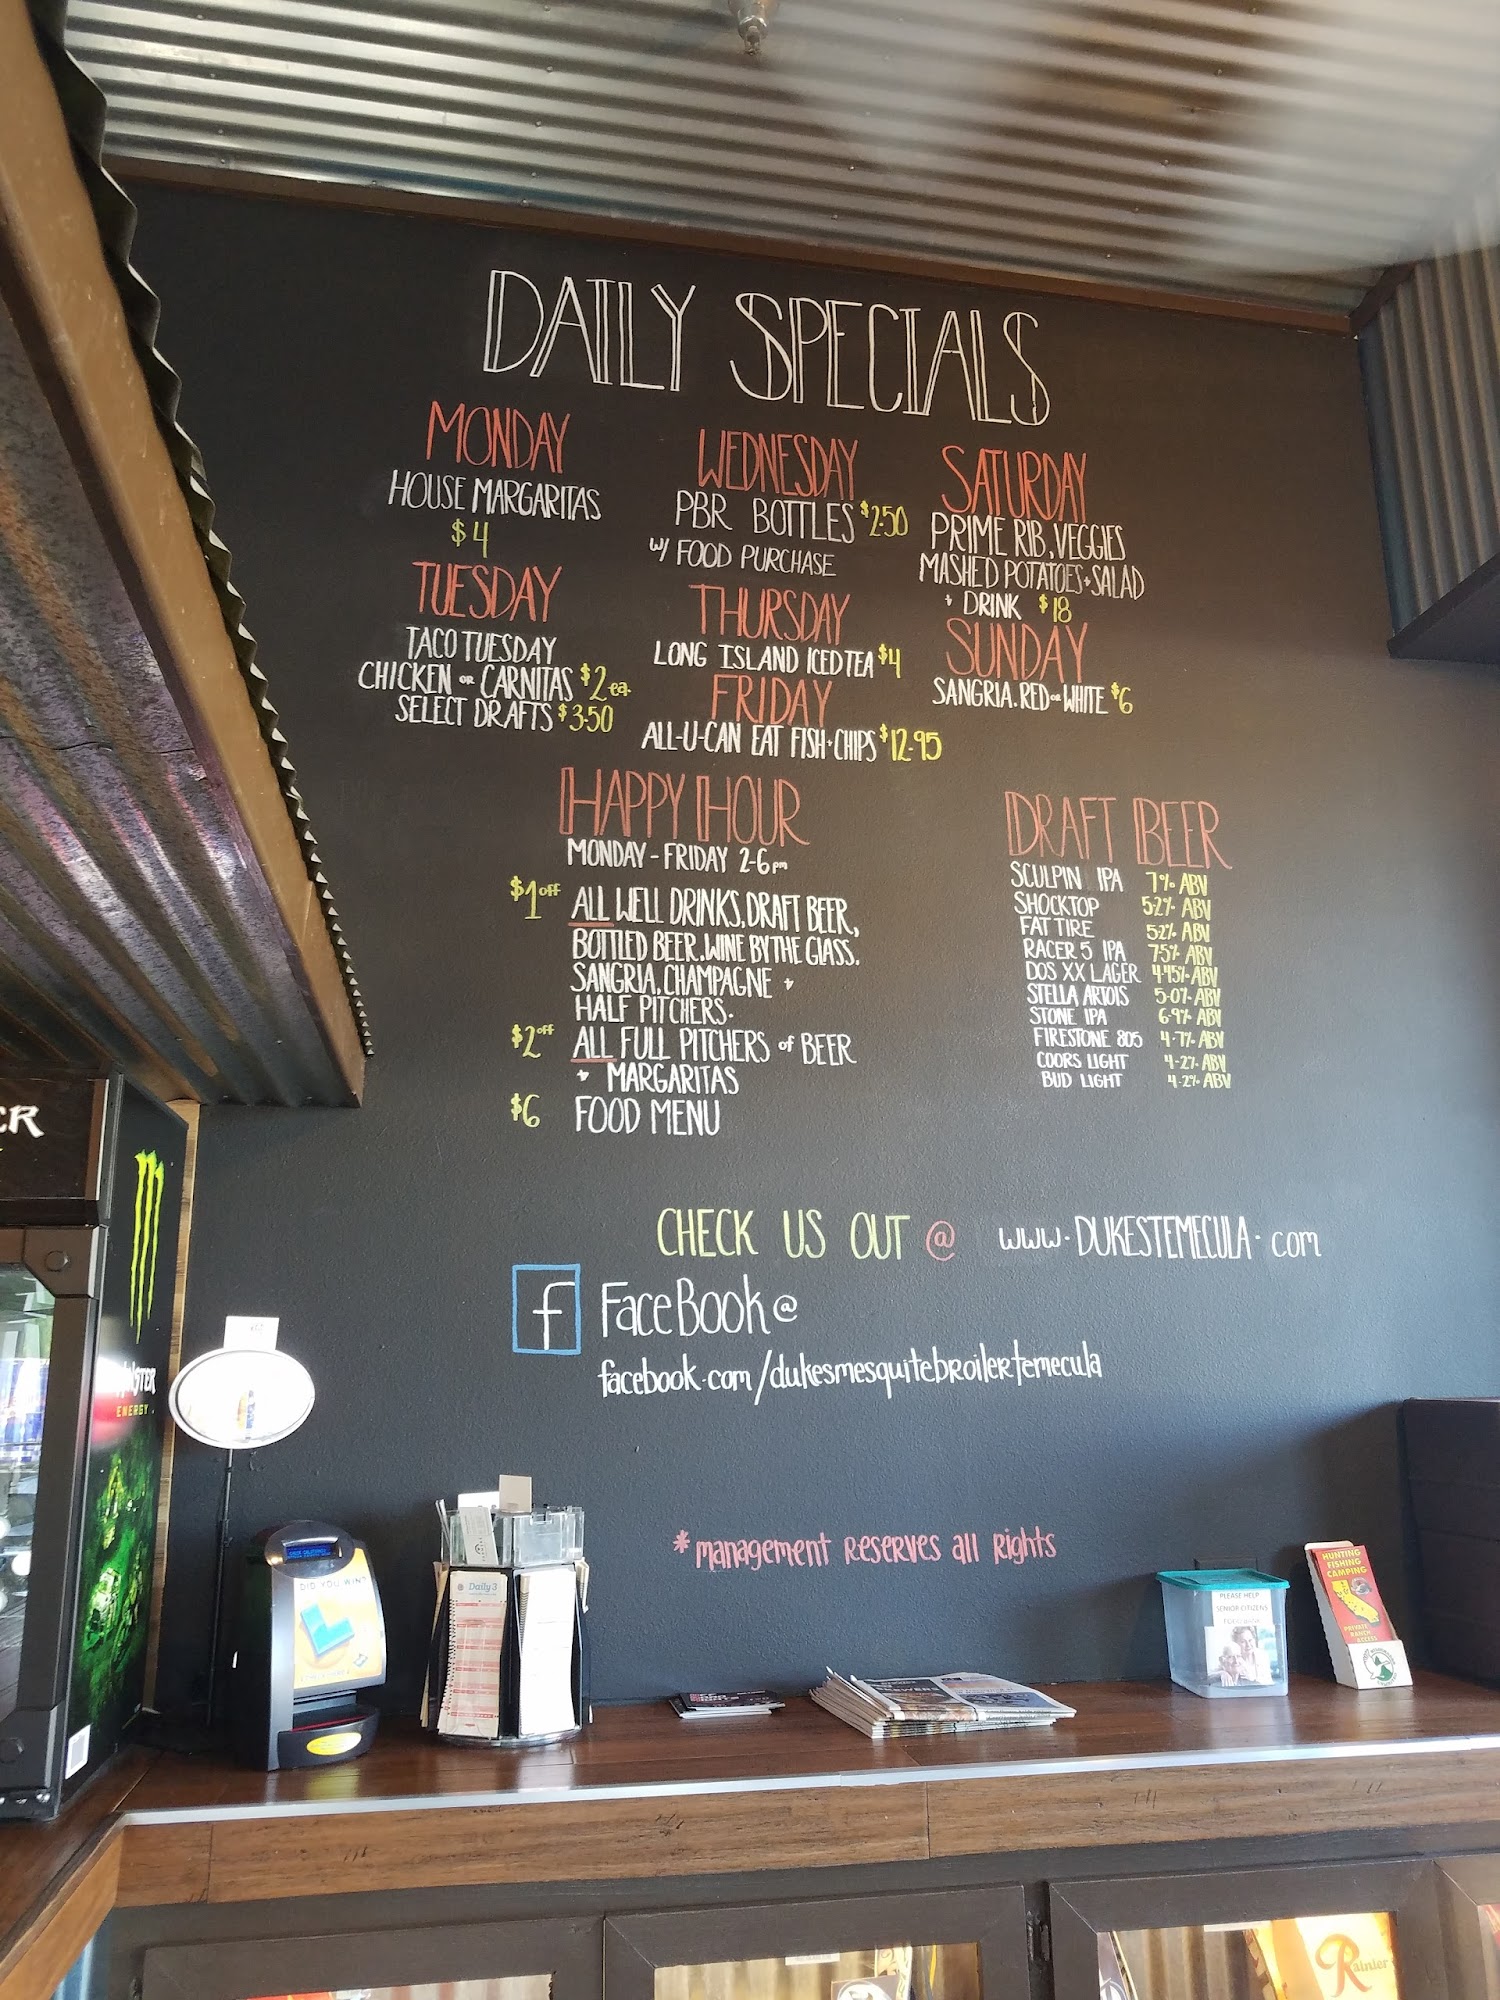 DAILY SPECIALS
MONDAY
HOUSE MARGARITAS
$4
TUESDAY
TACO TUESDAY
CHICKEN OR CARNITAS $2 ea.
SELECT DRAFTS $3.50
WEDNESDAY
PBR BOTTLES $2.50
W/ FOOD PURCHASE
THURSDAY
LONG ISLAND ICED TEA $4
FRIDAY
ALL-U-CAN EAT FISH + CHIPS $12.95
SATURDAY
PRIME RIB, VEGGIES
MASHED POTATOES + SALAD
+ DRINK $18
SUNDAY
SANGRIA. RED OR WHITE $6
HAPPY HOUR
MONDAY - FRIDAY 2-6pm
$1 off ALL WELL DRINKS, DRAFT BEER,
BOTTLED BEER, WINE BY THE GLASS,
SANGRIA, CHAMPAGNE +
HALF PITCHERS.
$2 off ALL FULL PITCHERS of BEER
+ MARGARITAS
$6 FOOD MENU
DRAFT BEER
SCULPIN IPA 7% ABV
SHOCKTOP 5.2% ABV
FAT TIRE 5.2% ABV
RACER 5 IPA 7.5% ABV
DOS XX LAGER 4.45% ABV
STELLA ARTOIS 5.0% ABV
STONE IPA 6.9% ABV
FIRESTONE 805 4.7% ABV
COORS LIGHT 4.2% ABV
BUD LIGHT 4.2% ABV
CHECK US OUT @ www.DUKESTEMECULA.com
f FaceBook @
facebook.com/dukesmesquitebroilertemecula
*management reserves all rights
ENERGY
DID YOU WIN?
Daily 3
PLEASE HELP
SENIOR CITIZENS
FOOD BANK
HUNTING
FISHING
CAMPING
PRIVATE
RANCH
ACCESS
Rainier